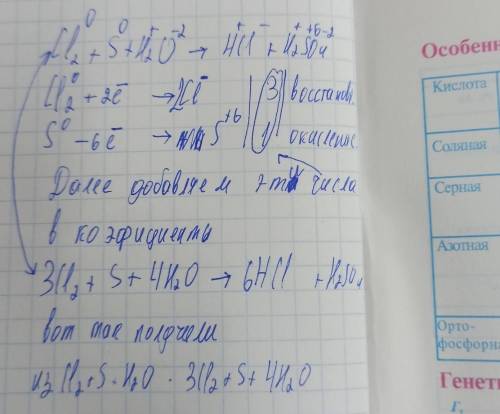 Cl₂⁰ + S⁰ + H₂⁺O⁻² → H⁺Cl⁻ + H₂⁺S⁺⁶O₄⁻²
Cl₂⁰ + 2e̅ → 2Cl⁻ | 3 | восстанов.
S⁰ - 6e̅ → S⁺⁶ | 1 | окисление
Далее добавляем эти числа
в коэфициенты
3Cl₂ + S + 4H₂O → 6HCl + H₂SO₄
вот так получали
из Cl₂ + S + H₂O · 3Cl₂ + S + 4H₂O
Особенн
Кислота
Соляная
Серная
Азотная
Орто-
фосфорна
Генети